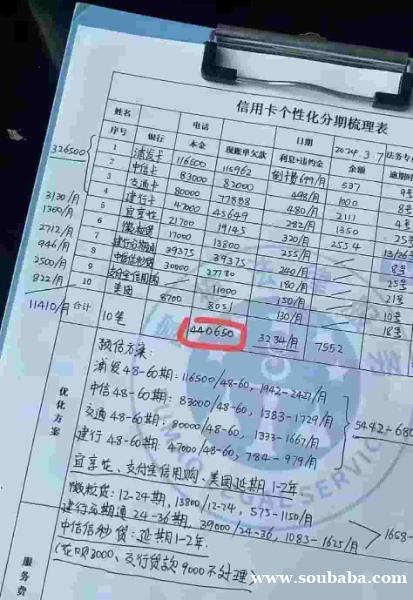 信用卡个性化分期梳理表
姓名 电话 日期 2024.3.7 法务专
序号 银行 本金 现账单欠款 利息+违约金 余额 逾期时
326500
1 浦发卡 116500 115962 倒卡费699/月 537
2 中信卡 83000 82000 498/月 1000 8号
3 交通卡 80000 77888 480/月 2111 4号
3130/月 4 建行卡 47000 45649 282/月 1350 25号
1300/月 5 宜享花 21700 19145 320/月 2554 13/26号
2712/月 6 微粒贷 17000 13800 255/月
946/月 7 建行分期通 39375 39375 240/月 25号
2500/月 8 30000 27780 180/月 21号
822/月 9 支付宝信用购 11000 150/月 10号
10 美团 8700 8051 130/月 18号
11410/月 合计 10笔 440650 3234/月 7552
优化方案
预估方案:
浦发48-60期: 116500/48-60, 1942-2427/月
中信48-60期: 83000/48-60, 1383-1729/月
交通48-60期: 80000/48-60, 1333-1667/月
建行48-60期: 47000/48-60, 784-979/月
5442-680
宜享花、支付宝信用购、美团延期1-2年
微粒贷: 12-24期, 13800/12-24, 575-1150/月
建行分期通24-36期, 39000/24-36, 1083-1625/月
1658-
中信信秒贷: 延期1-2年
(花呗3000、交行贷款9000不处理)
服务费
www.soubaba.com